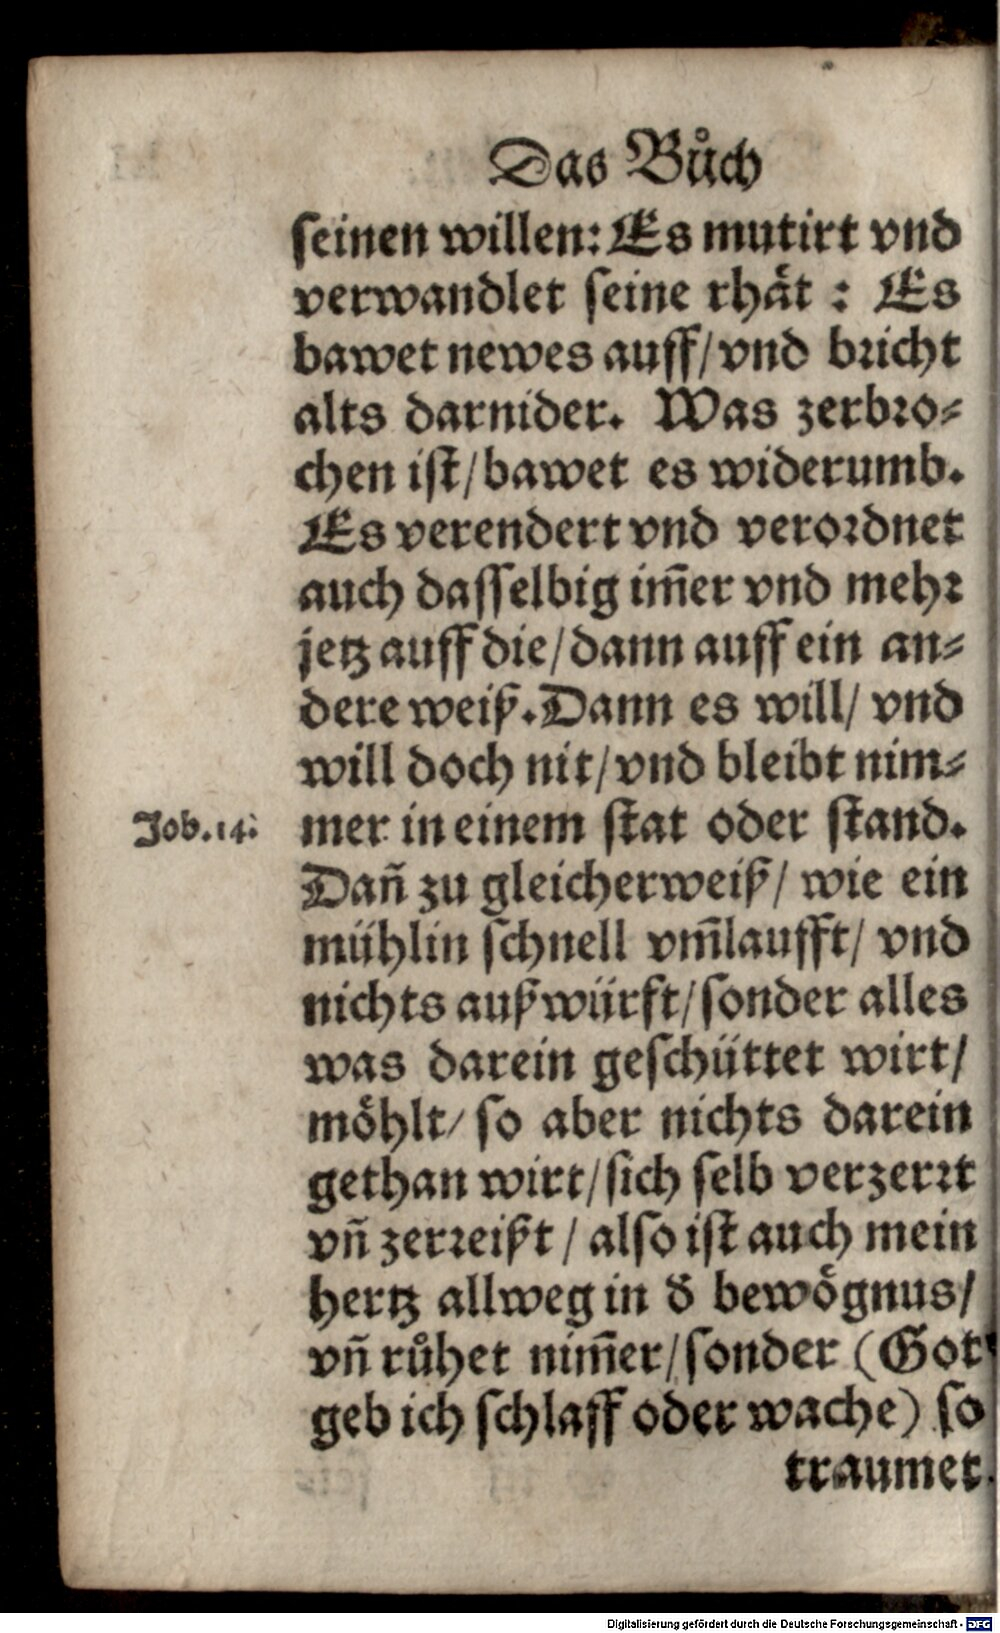 Das Bůch
seinen willen: Es mutirt vnd
verwandlet seine rhät : Es
bawet newes auff/ vnd bricht
alts darnider. Was zerbro-
chen ist/ bawet es widerumb.
Es verendert vnd verordnet
auch dasselbig im̃er vnd mehr
jetz auff die/ dann auff ein an-
dere weiß. Dann es will/ vnd
will doch nit/ vnd bleibt nim-
Job. 14. mer in einem stat oder stand.
Dañ zu gleicherweiß/ wie ein
mühlin schnell vm̃laufft/ vnd
nichts außwürft/ sonder alles
was darein geschüttet wirt/
möhlt/ so aber nichts darein
gethan wirt/ sich selb verzerrt
vñ zerreißt / also ist auch mein
hertz allweg in d̕ bewögnus/
vñ růhet nim̃er/ sonder (Got
geb ich schlaff oder wache) so
traumet
Digitalisierung gefördert durch die Deutsche Forschungsgemeinschaft - DFG